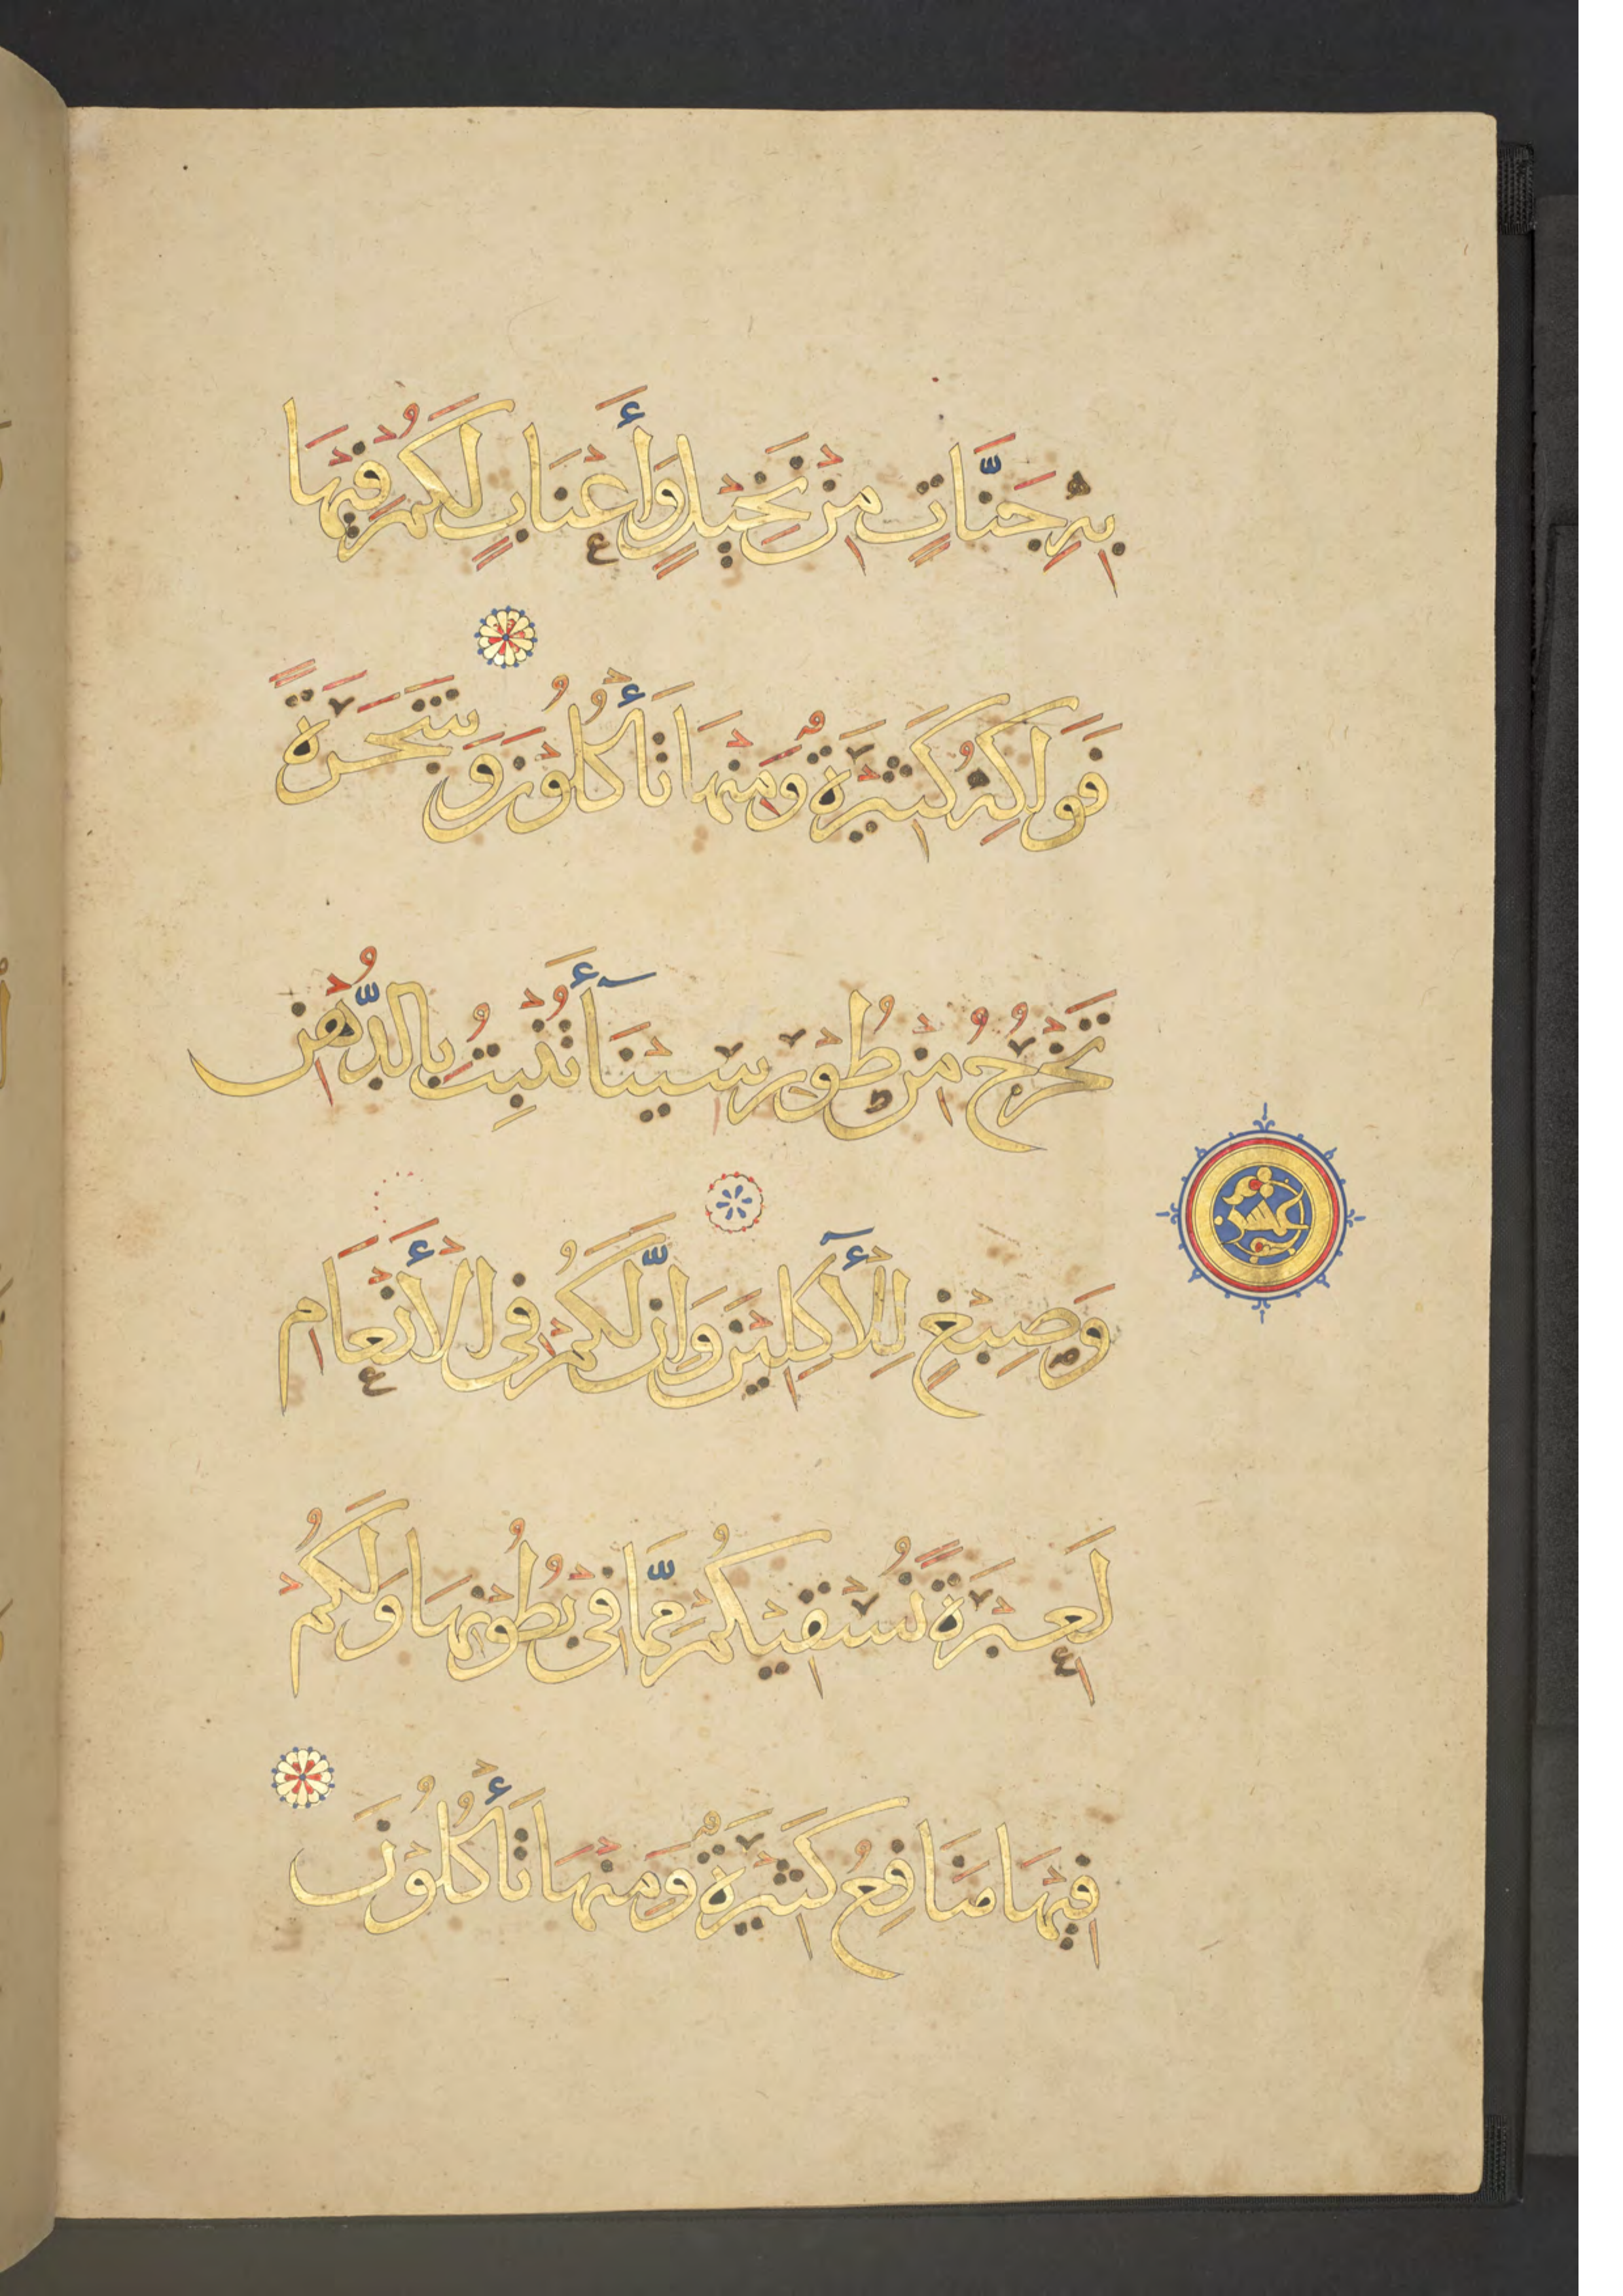 بِهِ جَنَّاتٍ مِنْ نَخِيلٍ وَأَعْنَابٍ لَكُمْ فِيهَا
فَوَاكِهُ كَثِيرَةٌ وَمِنْهَا تَأْكُلُونَ وَشَجَرَةً
تَخْرُجُ مِنْ طُورِ سِينَآءَ تُنْبِتُ بِالدُّهْنِ
وَصِبْغٍ لِلْآكِلِينَ وَإِنَّ لَكُمْ فِي الْأَنْعَامِ
لَعِبْرَةً نُسْقِيكُمْ مِمَّا فِي بُطُونِهَا وَلَكُمْ
فِيهَا مَنَافِعُ كَثِيرَةٌ وَمِنْهَا تَأْكُلُونَ